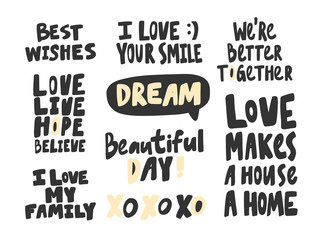 BEST
WISHES
I LOVE :)
YOUR SMILE
We're
BeTTER
TOGETHER
LOVE
LIVE
HOPE
BELIEVE
DREAM
Beautiful
DAY!
LOVE
MAKES
A HOUSe
A HOME
I LOVE
MY
FAMILY
XOXOXO